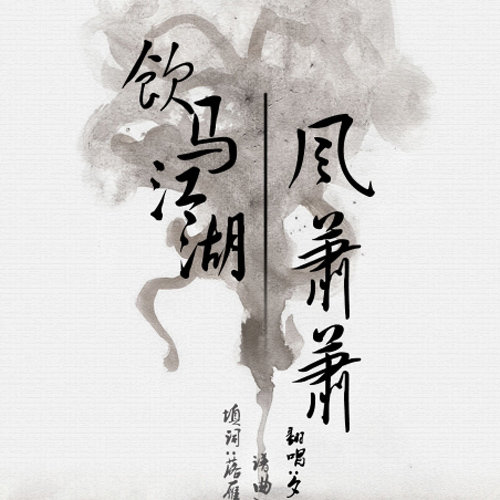 风萧萧
饮马江湖
翻唱:夕
谱曲
填词:落雁